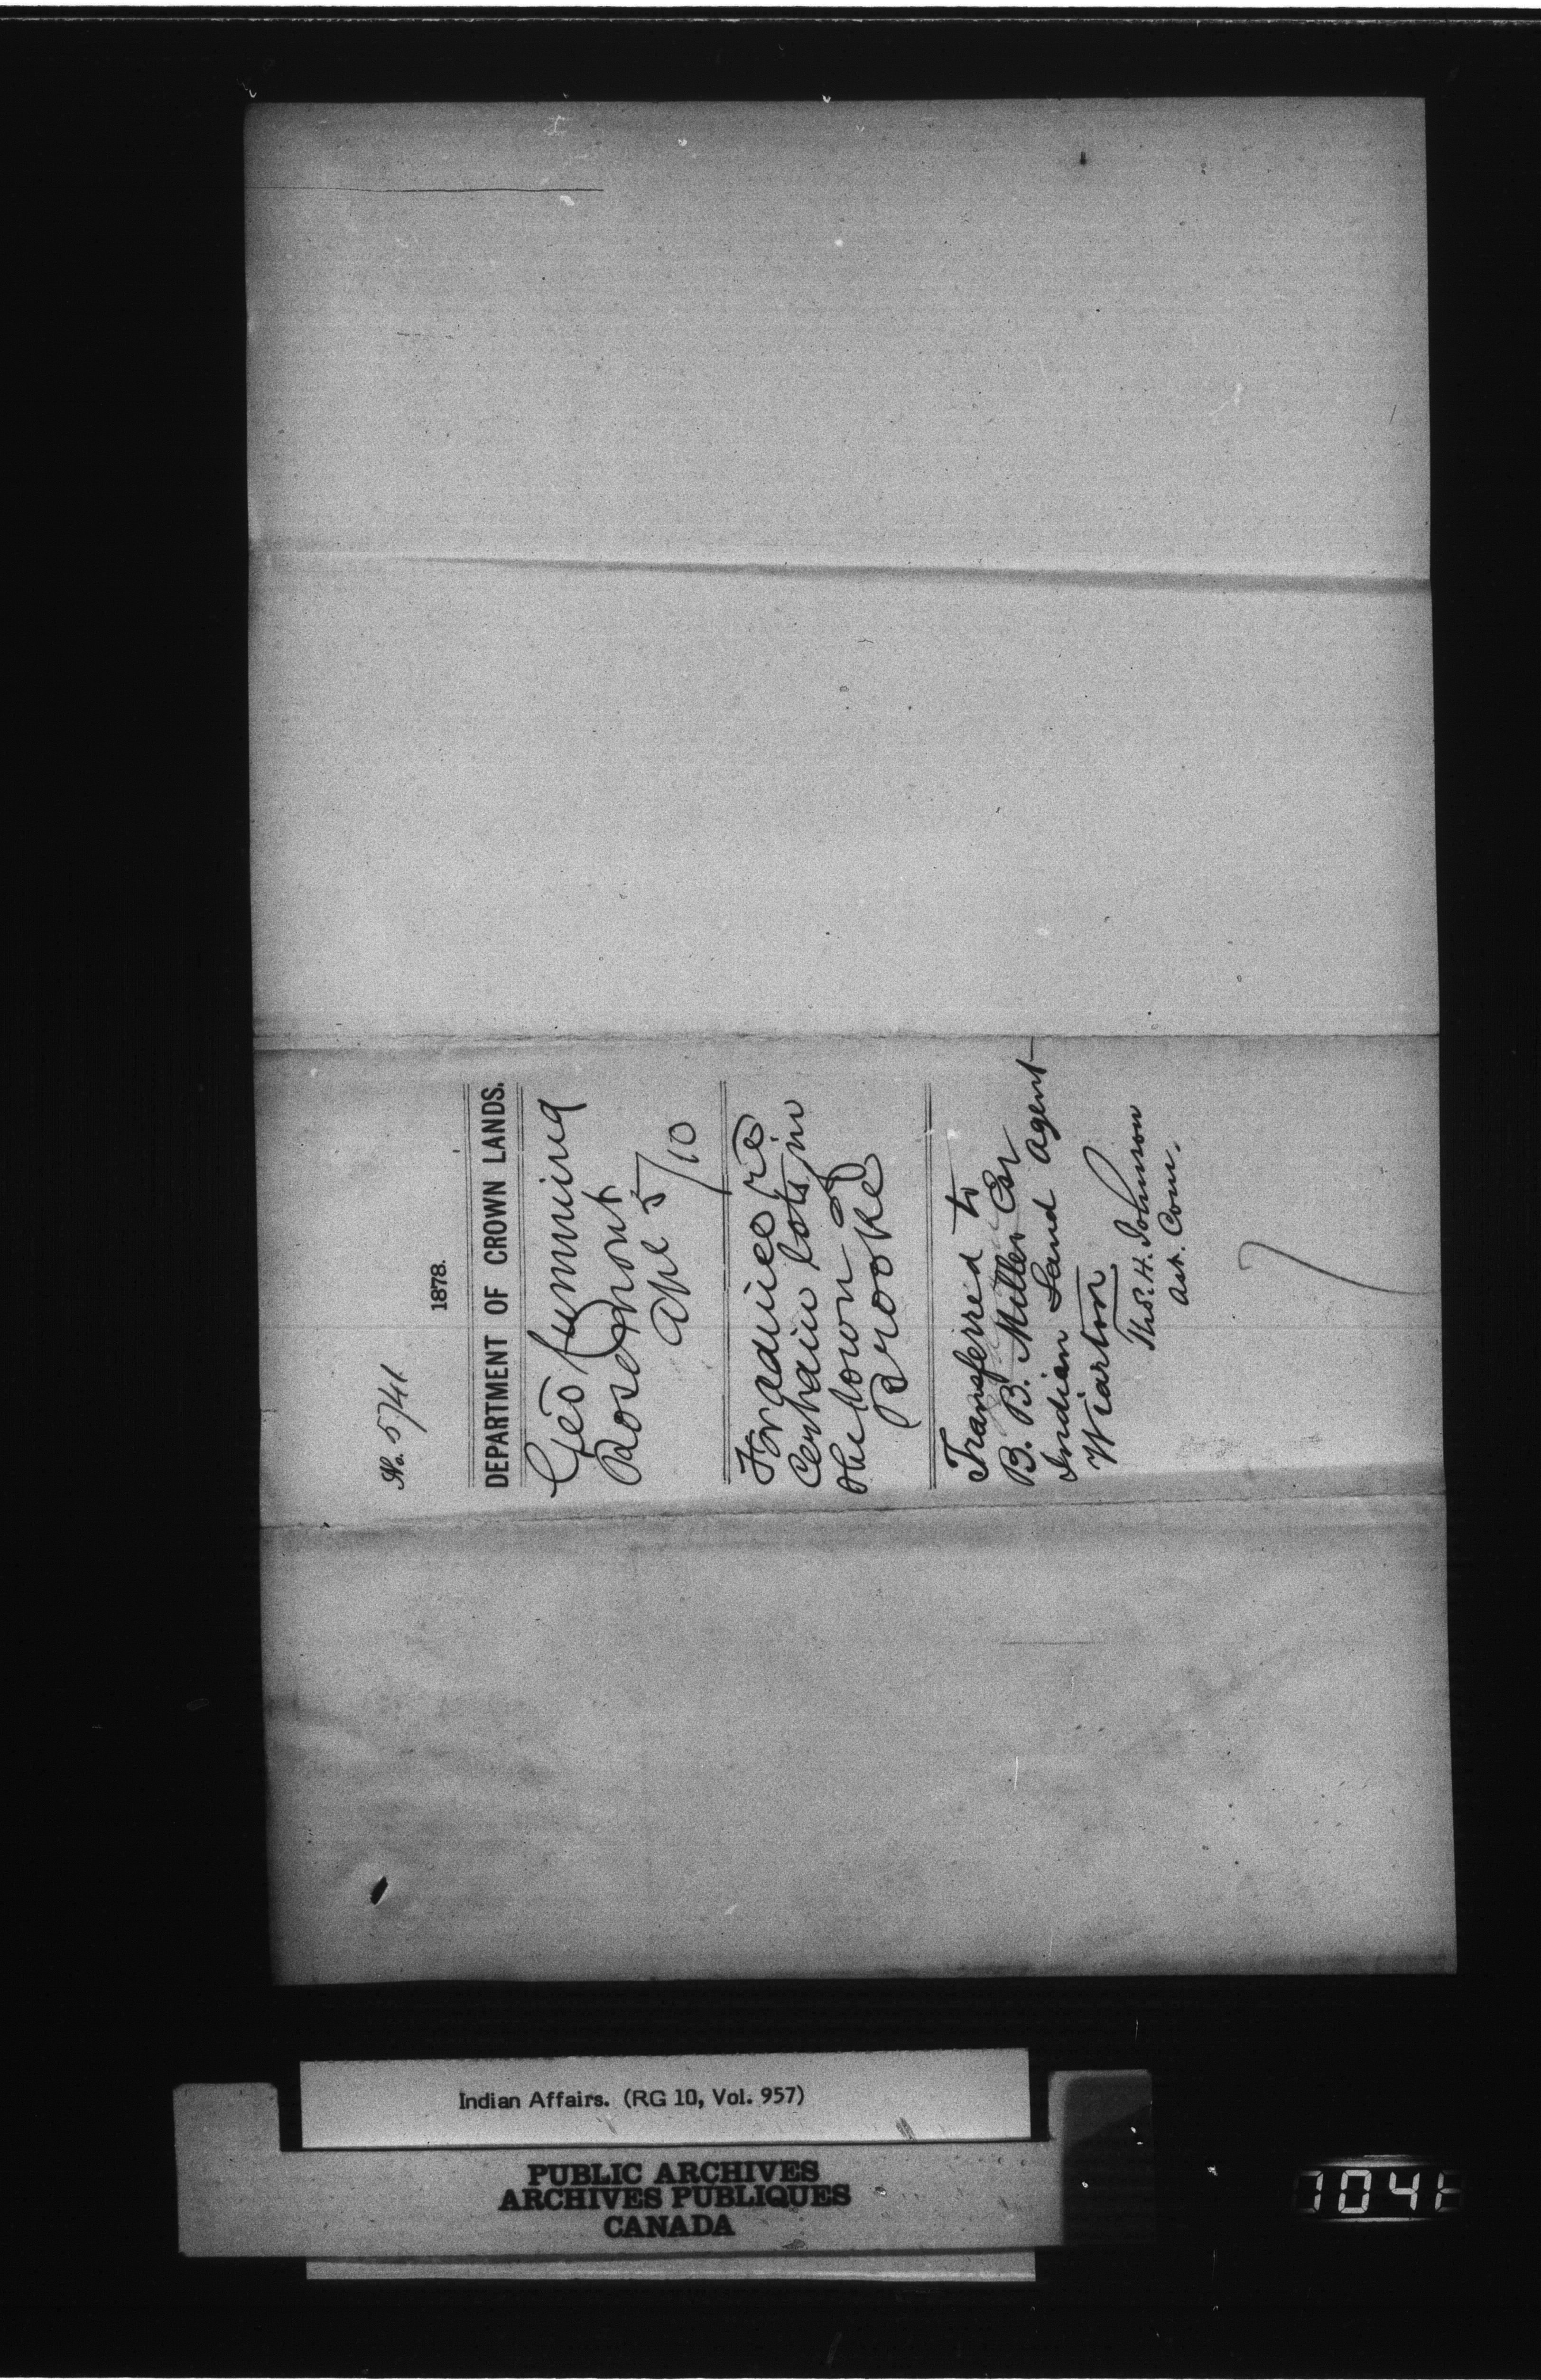 No. 5741
1878.
DEPARTMENT OF CROWN LANDS.
Geo Cumming
Rosemont
Apl 5/10
For advice re
Certain lots in
the town of
Brooke
Transferred to
B. B. Miller Esr
Indian Land Agent
Wiarton
Thos. H. Johnson
Ast. Com.
Indian Affairs. (RG 10, Vol. 957)
PUBLIC ARCHIVES
ARCHIVES PUBLIQUES
CANADA